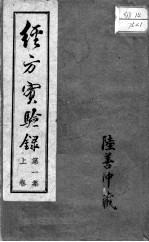 經方實驗錄
第一集
上卷
陸善沖識